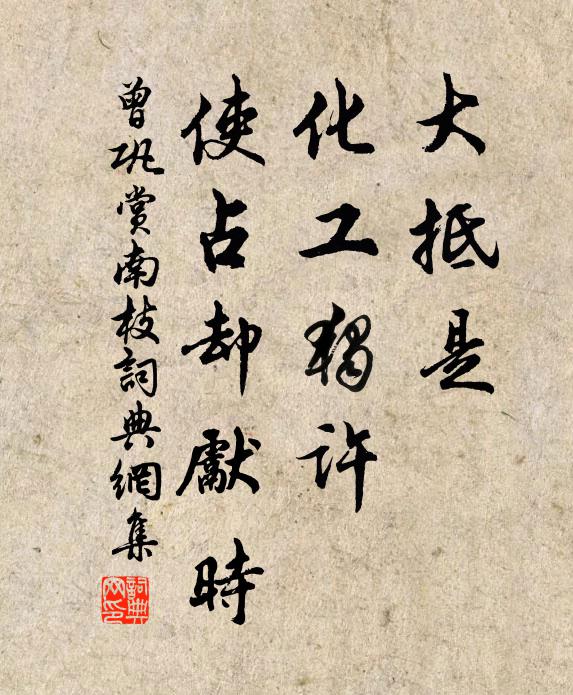 大抵是
化工獨許
使占却獻時
曾巩赏南枝詞典網集
詞典網印